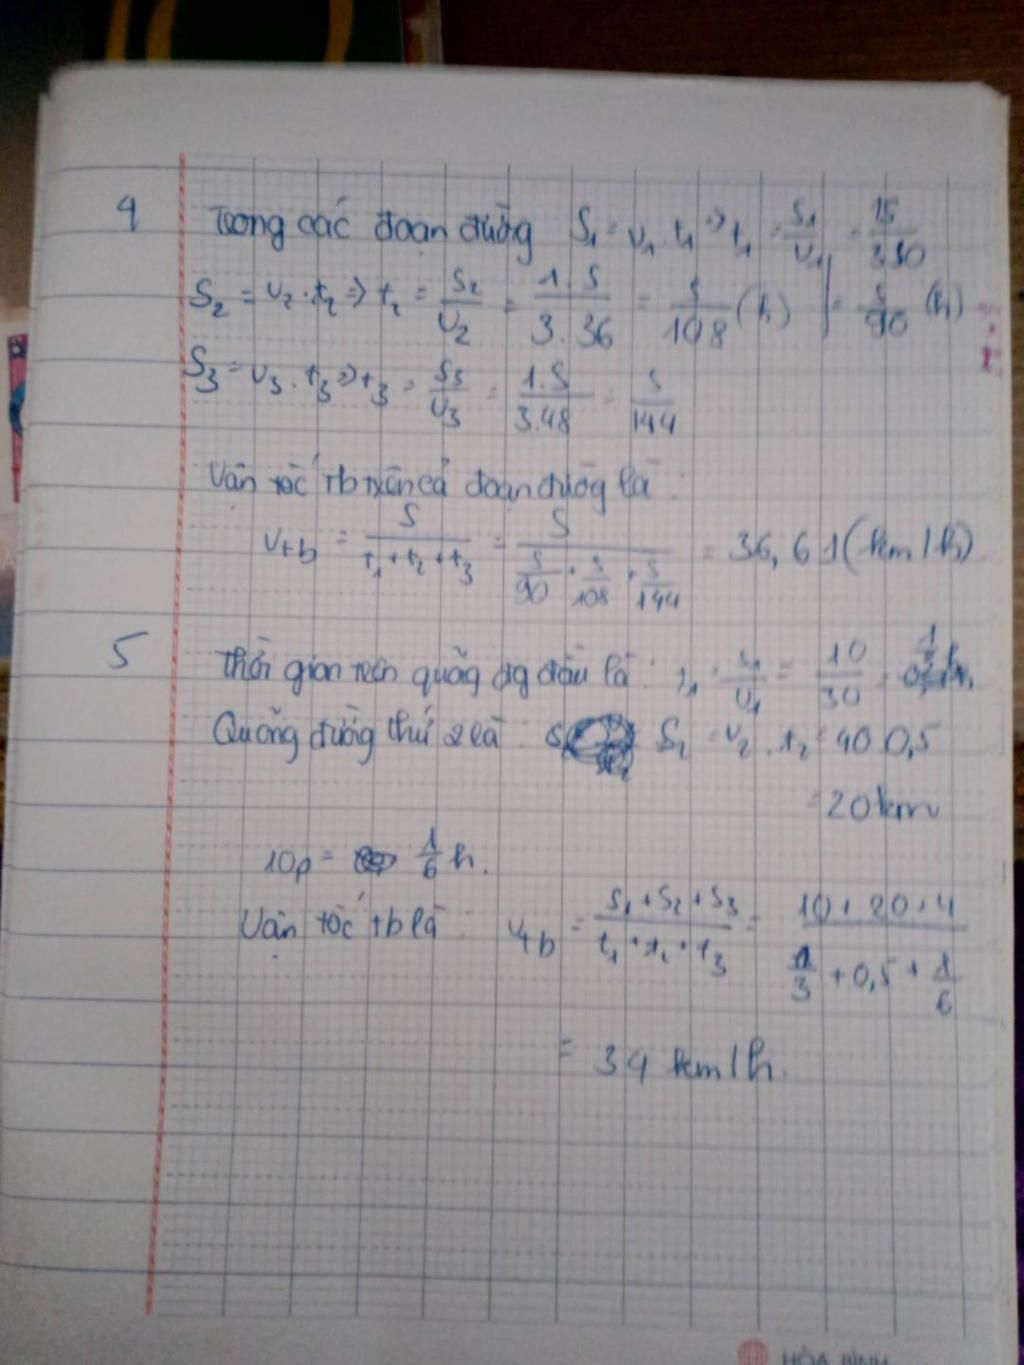 4 Trong các đoạn đường S₁ = v₁ . t₁ => t₁ = S₁/v₁ = 1S/3.30
S₂ = v₂ . t₂ => t₂ = S₂/v₂ = 1.S/3.36 = S/108 (h) | = S/90 (h)
S₃ = v₃ . t₃ => t₃ = S₃/v₃ = 1.S/3.48 = S/144
Vận tốc tb trên cả đoạn đường là :
vtb = S/(t₁ + t₂ + t₃) = S/(S/90 + S/108 + S/144) = 36,61 (km/h)
5 Thời gian trên quãng đg đầu là : t₁ = S₁/v₁ = 10/30 = 1/3 h
Quãng đường thứ 2 là : S₂ = v₂ . t₂ = 40.0,5
= 20 km
10p = 1/6 h.
Vận tốc tb là vtb = (S₁ + S₂ + S₃)/(t₁ + t₂ + t₃) = (10 + 20 + 4)/(1/3 + 0,5 + 1/6)
= 34 km/h.
HÒA BÌNH